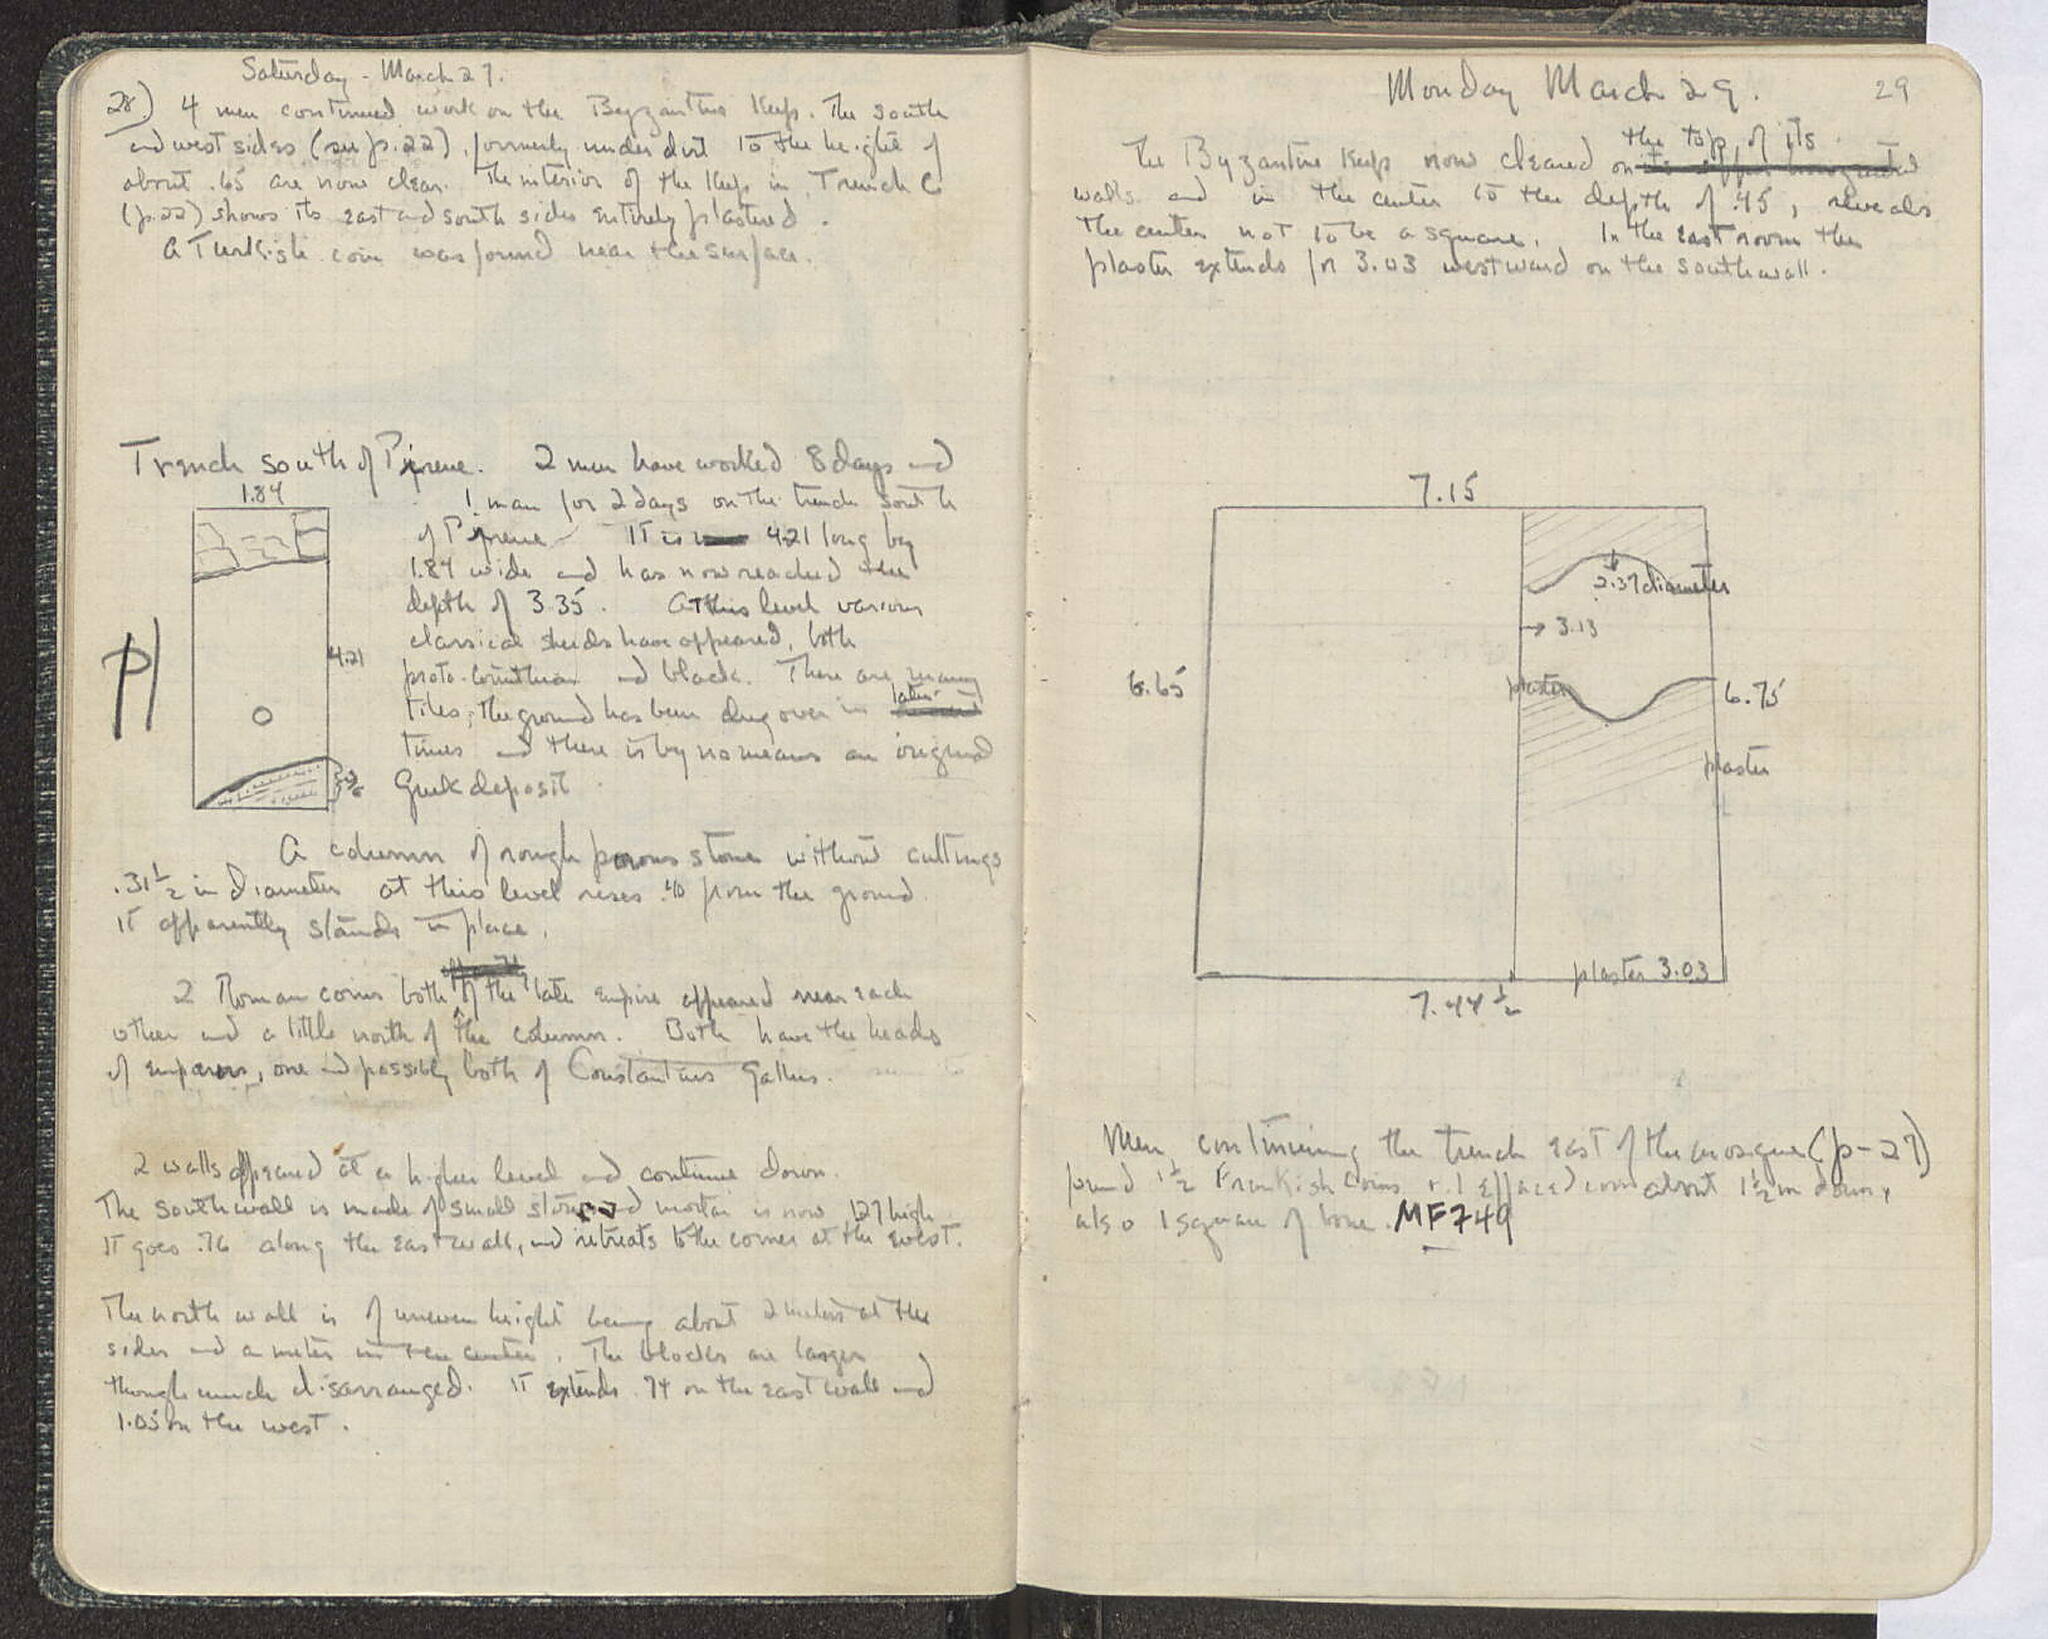 Saturday - March 27.
28) 4 men continued work on the Byzantine Keep. The south
and west sides (see p.22), formerly under dirt to the height of
about .65 are now clear. The interior of the Keep in Trench C
(p.22) shows its east and south sides entirely plastered.
A Turkish coin was found near the surface.
Trench south of Pirene. 2 men have worked 8 days and
1 man for 2 days on the trench south
of Pirene - It is 4.21 long by
1.84 wide and has now reached the
depth of 3.35. At this level various
classical sherds have appeared, both
proto-Corinthian and black. There are many
tiles; the ground has been dug over in later
times and there is by no means an original
Greek deposit.
1.84
4.21
PI
A column of rough poros stone without cuttings
.31½ in diameter at this level rises .40 from the ground.
It apparently stands in place.
2 Roman coins both of the late empire appeared near each
other and a little north of the column. Both have the heads
of emperors, one and possibly both of Constantius Gallus.
2 walls appeared at a higher level and continue down.
The south wall is made of small stones and mortar is now 1.27 high
It goes .76 along the east wall, and retreats to the corner at the west.
The north wall is of uneven height being about 2 meters at the
sides and a meter in the center. The blocks are larger
though much disarranged. It extends .74 on the east wall and
1.05 on the west.
Monday March 29.
29
The Byzantine Keep now cleared on the top of its
walls and in the center to the depth of .45, reveals
the center not to be a square. In the east room the
plaster extends for 3.03 westward on the south wall.
7.15
2.37 diameter
3.13
6.65
plaster
6.75
plaster
plaster 3.03
7.44½
Men continuing the trench east of the mosque (p-27)
found 1½ Frankish coins + 1 effaced coin about 1½ m down,
also 1 square of bone. MF749